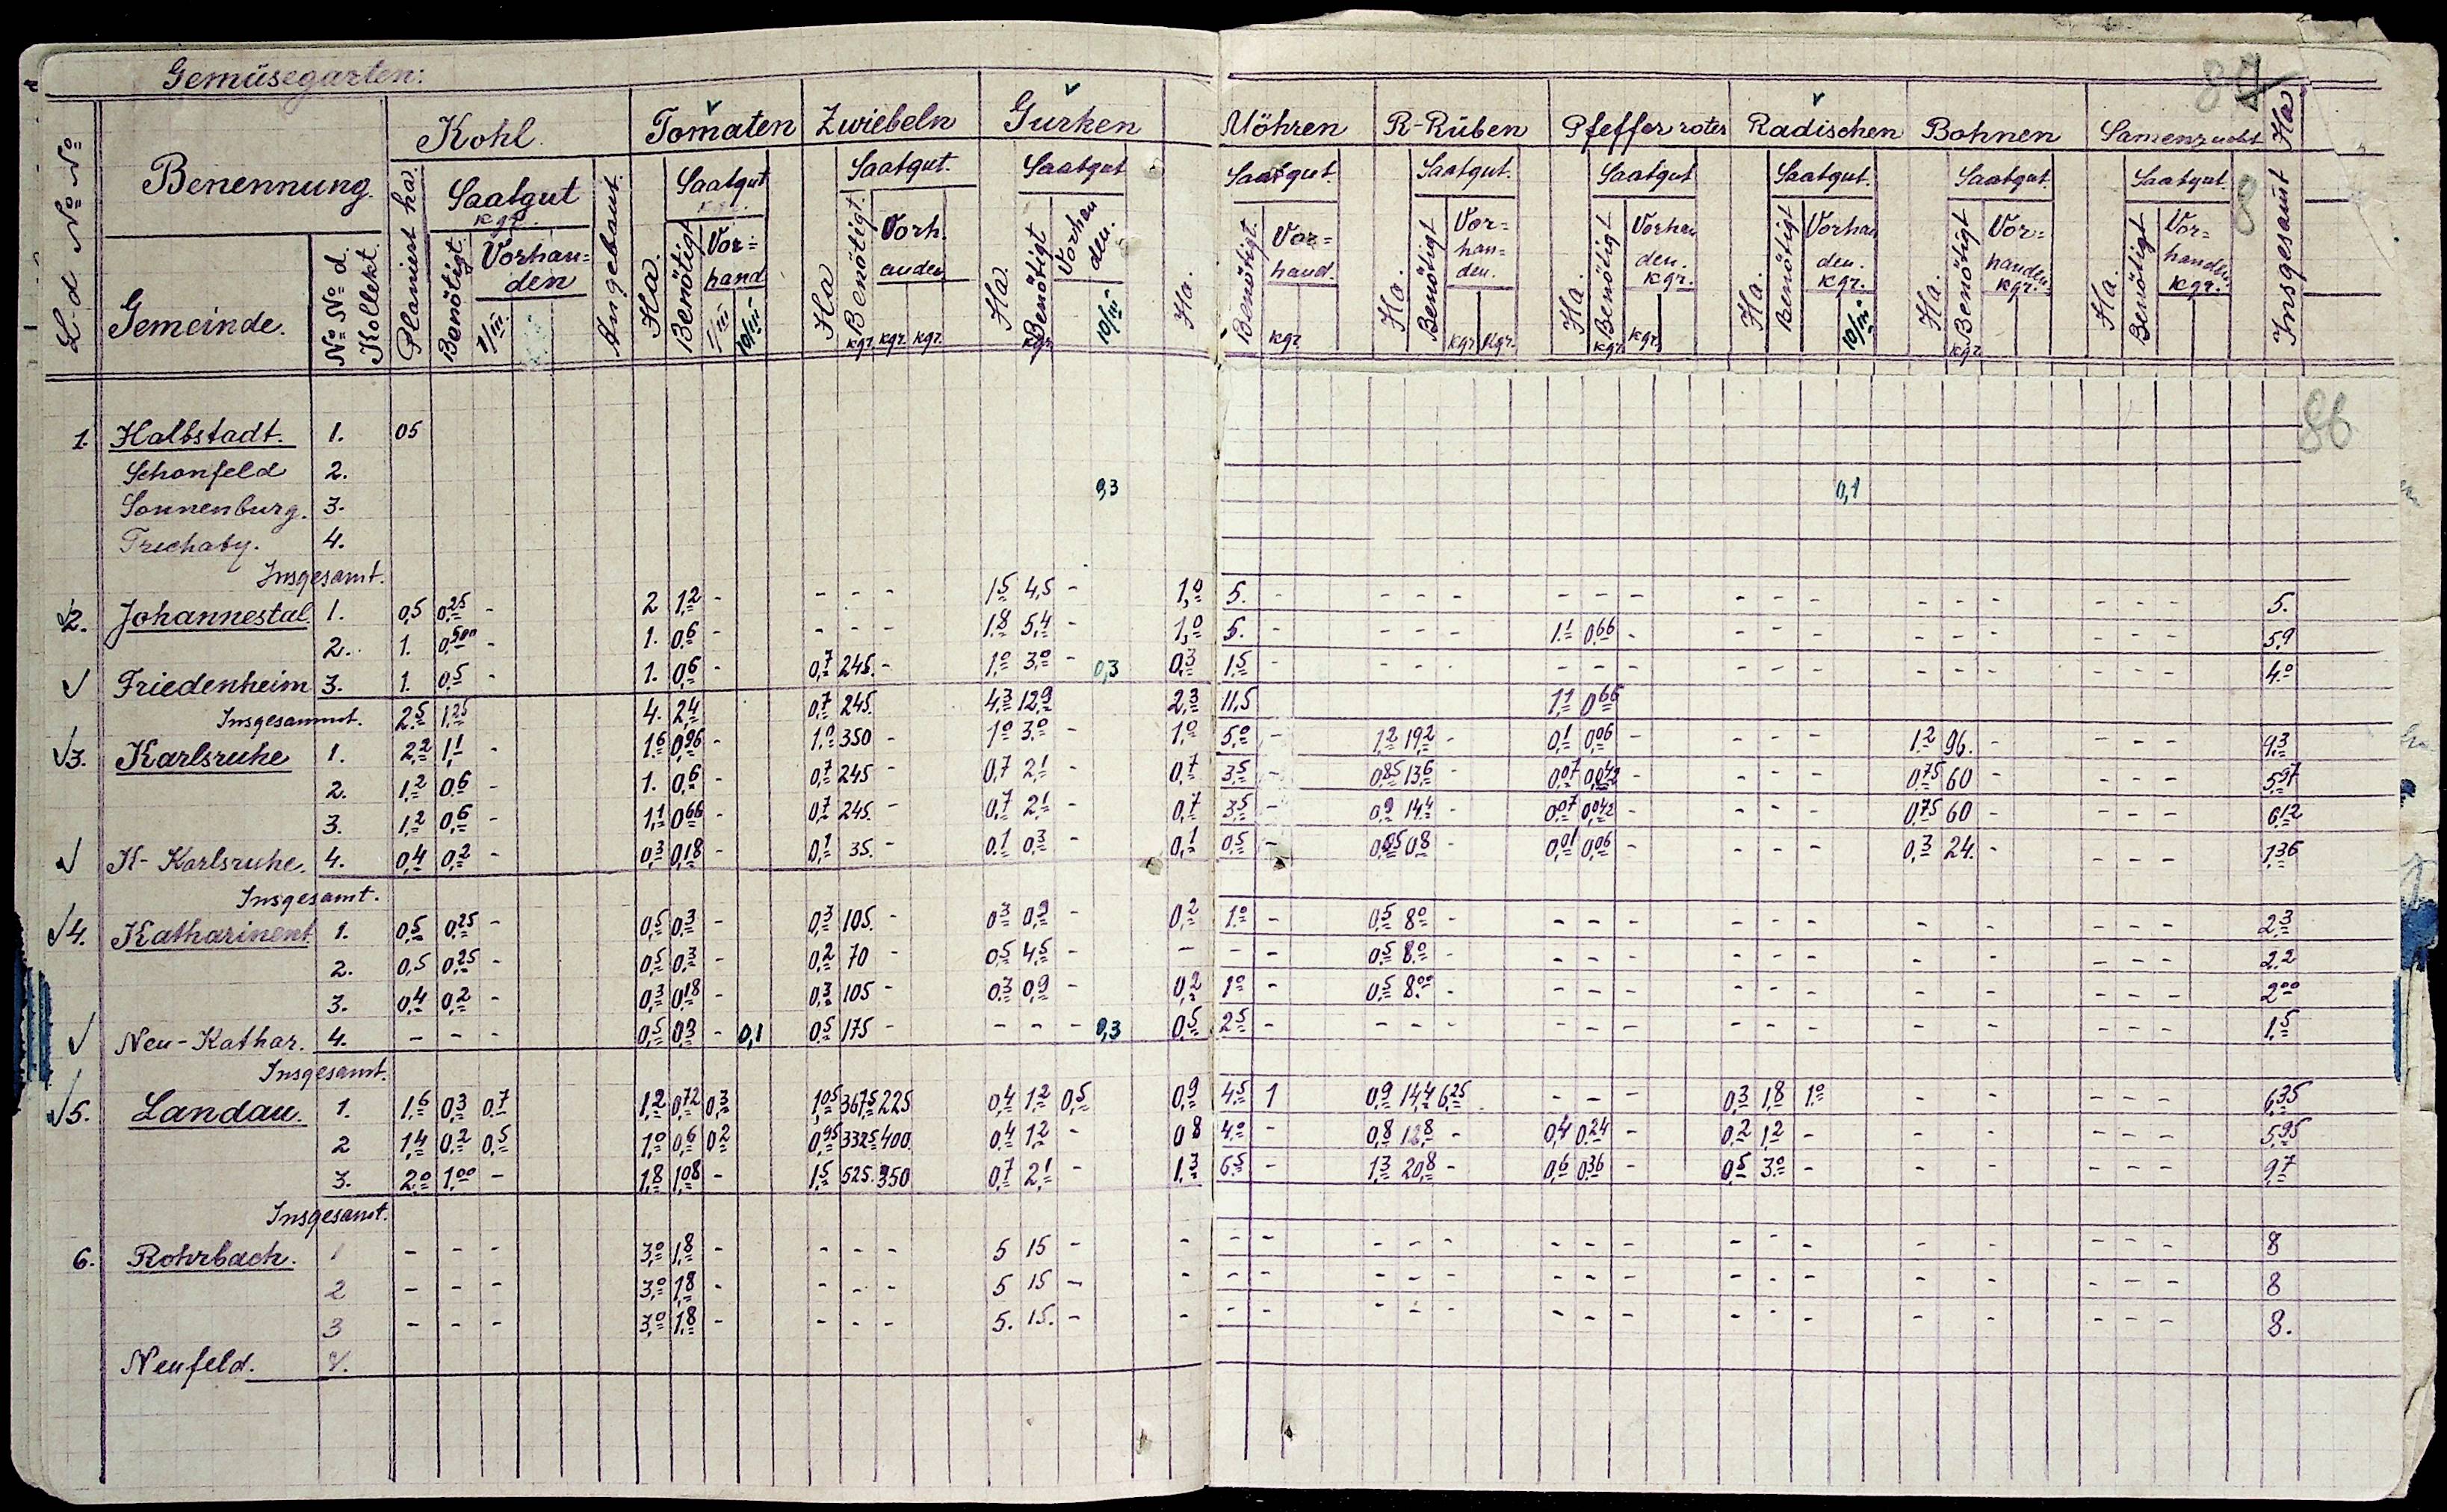 Gemüsegarten:
87
L-d №№ Benennung. Kohl. Tomaten Zwiebeln Gurken Möhren R-Rüben Pfeffer roter Radischen Bohnen Samenzucht Insgesamt Ha
Gemeinde. №№ d. Kollekt. Planiert ha. Saatgut kgr. Angebaut. Saatgut kgr. Saatgut. Saatgut Saatgut. Saatgut. Saatgut Saatgut. Saatgut. Saatgut.
Benötigt. Vorhan=den 1/III. Ha. Benötigt Vor=hand 1/III 10/III Ha Benötigt. Vorh.anden kgr. kgr. kgr. Ha. Benötigt kgr. Vorhanden. 10/III Ha. Benötigt. Vor=hand. kgr. Ha. Benötigt Vor=han=den. kgr. kgr. Ha. Benötigt Vorhanden. kgr. kgr. kgr. Ha. Benötigt Vorhanden. kgr. 10/III Ha. Benötigt kgr. Vor=handen kgr. Ha. Benötigt Vor=handen kgr.
8
86
1. Halbstadt. 1. 05
Schonfeld 2.
0,3 0,1
Sonnenburg. 3.
4.
Insgesamt.
√2. Johannestal. 1. 0,5 0,25 - 2 1,2 - - - - 1,5 4,5 - 1,0 5. - - - - - - - - - - - - - - - - 5.
2. 1. 0,500 - 1. 0,6 - - - - 1,8 5,4 - 1,0 5. - - - - 1,1 0,66 - - - - - - - - - - 5,9
√ Friedenheim 3. 1. 0,5 - 1. 0,6 - 0,7 245. - 1,0 3,0 - 0,3 0,3 1,5 - - - - - - - - - - - - - - - - 4,0
Insgesammt. 2,5 1,25 4. 2,4 0,7 245. 4,3 12,9 2,3 11,5 1,1 0,66
√3. Karlsruhe 1. 2,2 1,1 - 1,6 0,96 - 1,0 350 - 1,0 3,0 - 1,0 5,0 - 1,2 19,2 - 0,1 0,06 - - - - 1,2 96. - - - - 9,3
2. 1,2 0,6 - 1. 0,6 - 0,7 245 - 0,7 2,1 - 0,7 3,5 - 0,85 13,6 - 0,07 0,042 - - - - 0,75 60 - - - - 5,97
3. 1,2 0,6 - 1,1 0,66 - 0,7 245. - 0,7 2,1 - 0,7 3,5 - 0,9 14,4 - 0,07 0,042 - - - - 0,75 60 - - - - 6,12
√ K-Karlsruhe. 4. 0,4 0,2 - 0,3 0,18 - 0,1 35. - 0,1 0,3 - 0,1 0,5 - 0,05 0,8 - 0,01 0,06 - - - - 0,3 24. - - - - 1,36
Insgesamt.
√4. Katharinent. 1. 0,5 0,25 - 0,5 0,3 - 0,3 105. - 0,3 0,9 - 0,2 1,0 - 0,5 8,0 - - - - - - - - - - - - 2,3
2. 0,5 0,25 - 0,5 0,3 - 0,2 70 - 0,5 4,5 - - - - 0,5 8,0 - - - - - - - - - - - - 2,2
3. 0,4 0,2 - 0,3 0,18 - 0,3 105 - 0,3 0,9 - 0,2 1,0 - 0,5 8,00 - - - - - - - - - - - - 2,00
√ Neu-Kathar. 4. - - - 0,5 0,3 - 0,1 0,5 175 - - - - 0,3 0,5 2,5 - - - - - - - - - - - - - - - 1,5
Insgesamt.
√5. Landau. 1. 1,6 0,3 0,7 1,2 0,72 0,3 1,05 367,5 225 0,4 1,2 0,5 0,9 4,5 1 0,9 14,4 6,25 - - - 0,3 1,8 1,0 - - - - - 6,35
2 1,4 0,2 0,5 1,0 0,6 0,2 0,95 332,5 400 0,4 1,2 - 0,8 4,0 - 0,8 12,8 - 0,4 0,24 - 0,2 1,2 - - - - - - 5,95
3. 2,0 1,00 - 1,8 1,08 - 1,5 525. 350 0,7 2,1 - 1,3 6,5 - 1,3 20,8 - 0,6 0,36 - 0,5 3,0 - - - - - - 9,7
Insgesamt.
6. Rohrbach. 1 - - - 3,0 1,8 - - - - 5 15 - - - - - - - - - - - - - - - - - - 8
2 - - - 3,0 1,8 - - - - 5 15 - - - - - - - - - - - - - - - - - - 8
3 - - - 3,0 1,8 - - - - 5. 15. - - - - - - - - - - - - - - - - - - 8.
Neufeld. 4.